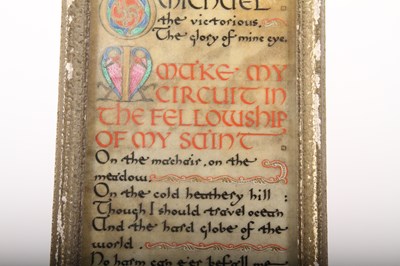 MICHAEL
the victorious.
The glory of mine eye.
I MAKE MY
CIRCUIT IN
THE FELLOWSHIP
OF MY SAINT
On the machair, on the
meadow.
On the cold heathery hill :
Though I should travel ocean
And the hard globe of the
world .
No harm can e'er befall me